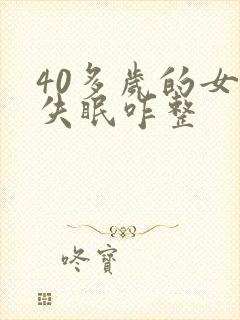 40多歲的女
失眠咋整
咚寶